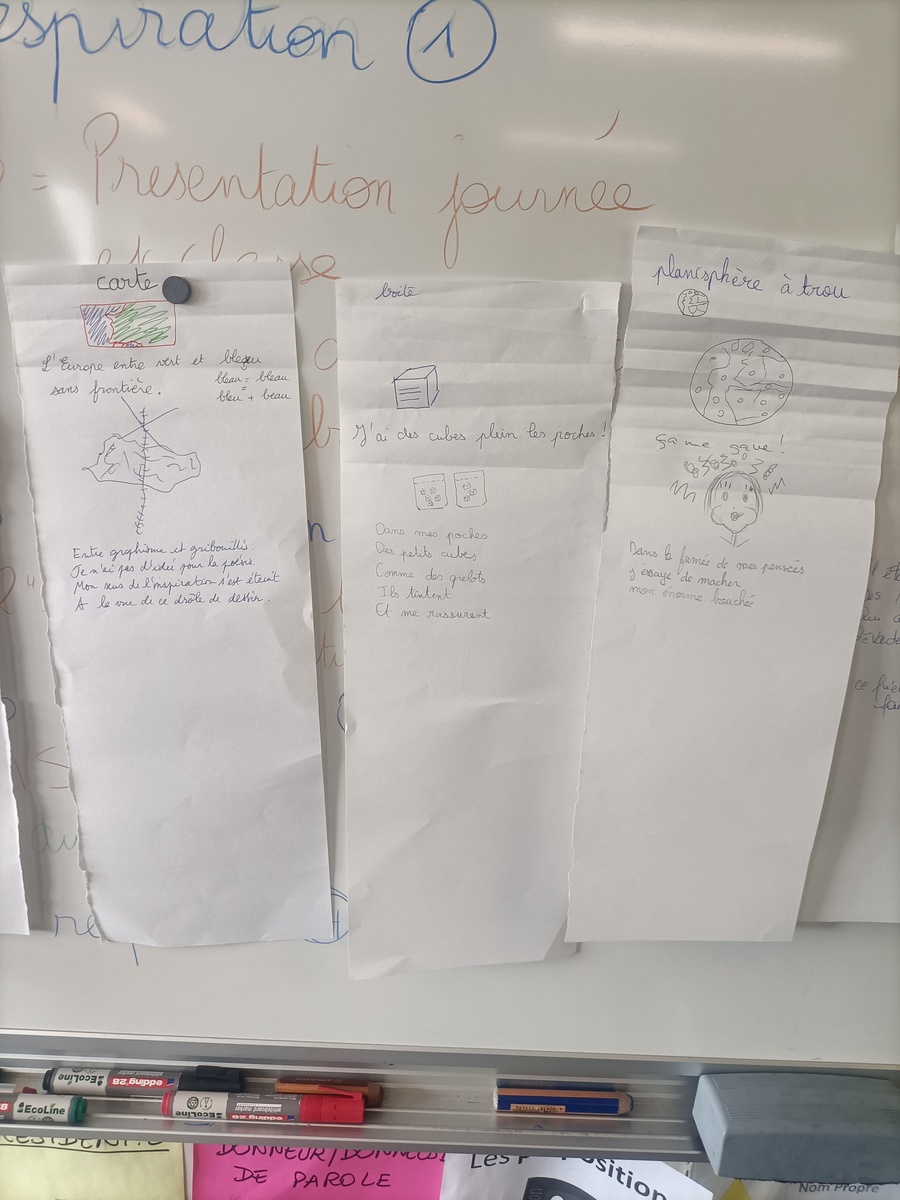 espiration 1
= Présentation journée
et classe
carte
L'Europe entre vert et bleau
sans frontière.
bleau = bleau
=
bleu + beau
Entre graphisme et gribouillis
Je n'ai pas d'idée pour la poésie
Mon sens de l'inspiration s'est éteint
A la vue de ce drôle de dessin.
boite
J'ai des cubes plein les poches !
Dans mes poches
Des petits cubes
Comme des grelots
Ils tintent
Et me rassurent
planisphère à trou
ça me gave !
Dans la fumée de mes pensées
j'éssaye de macher
mon énorme bouchée
EcoLine
edding 28
EcoLine
edding 28
EcoLine
DONNEUR/DONNEUSE
DE PAROLE
Nom Propre